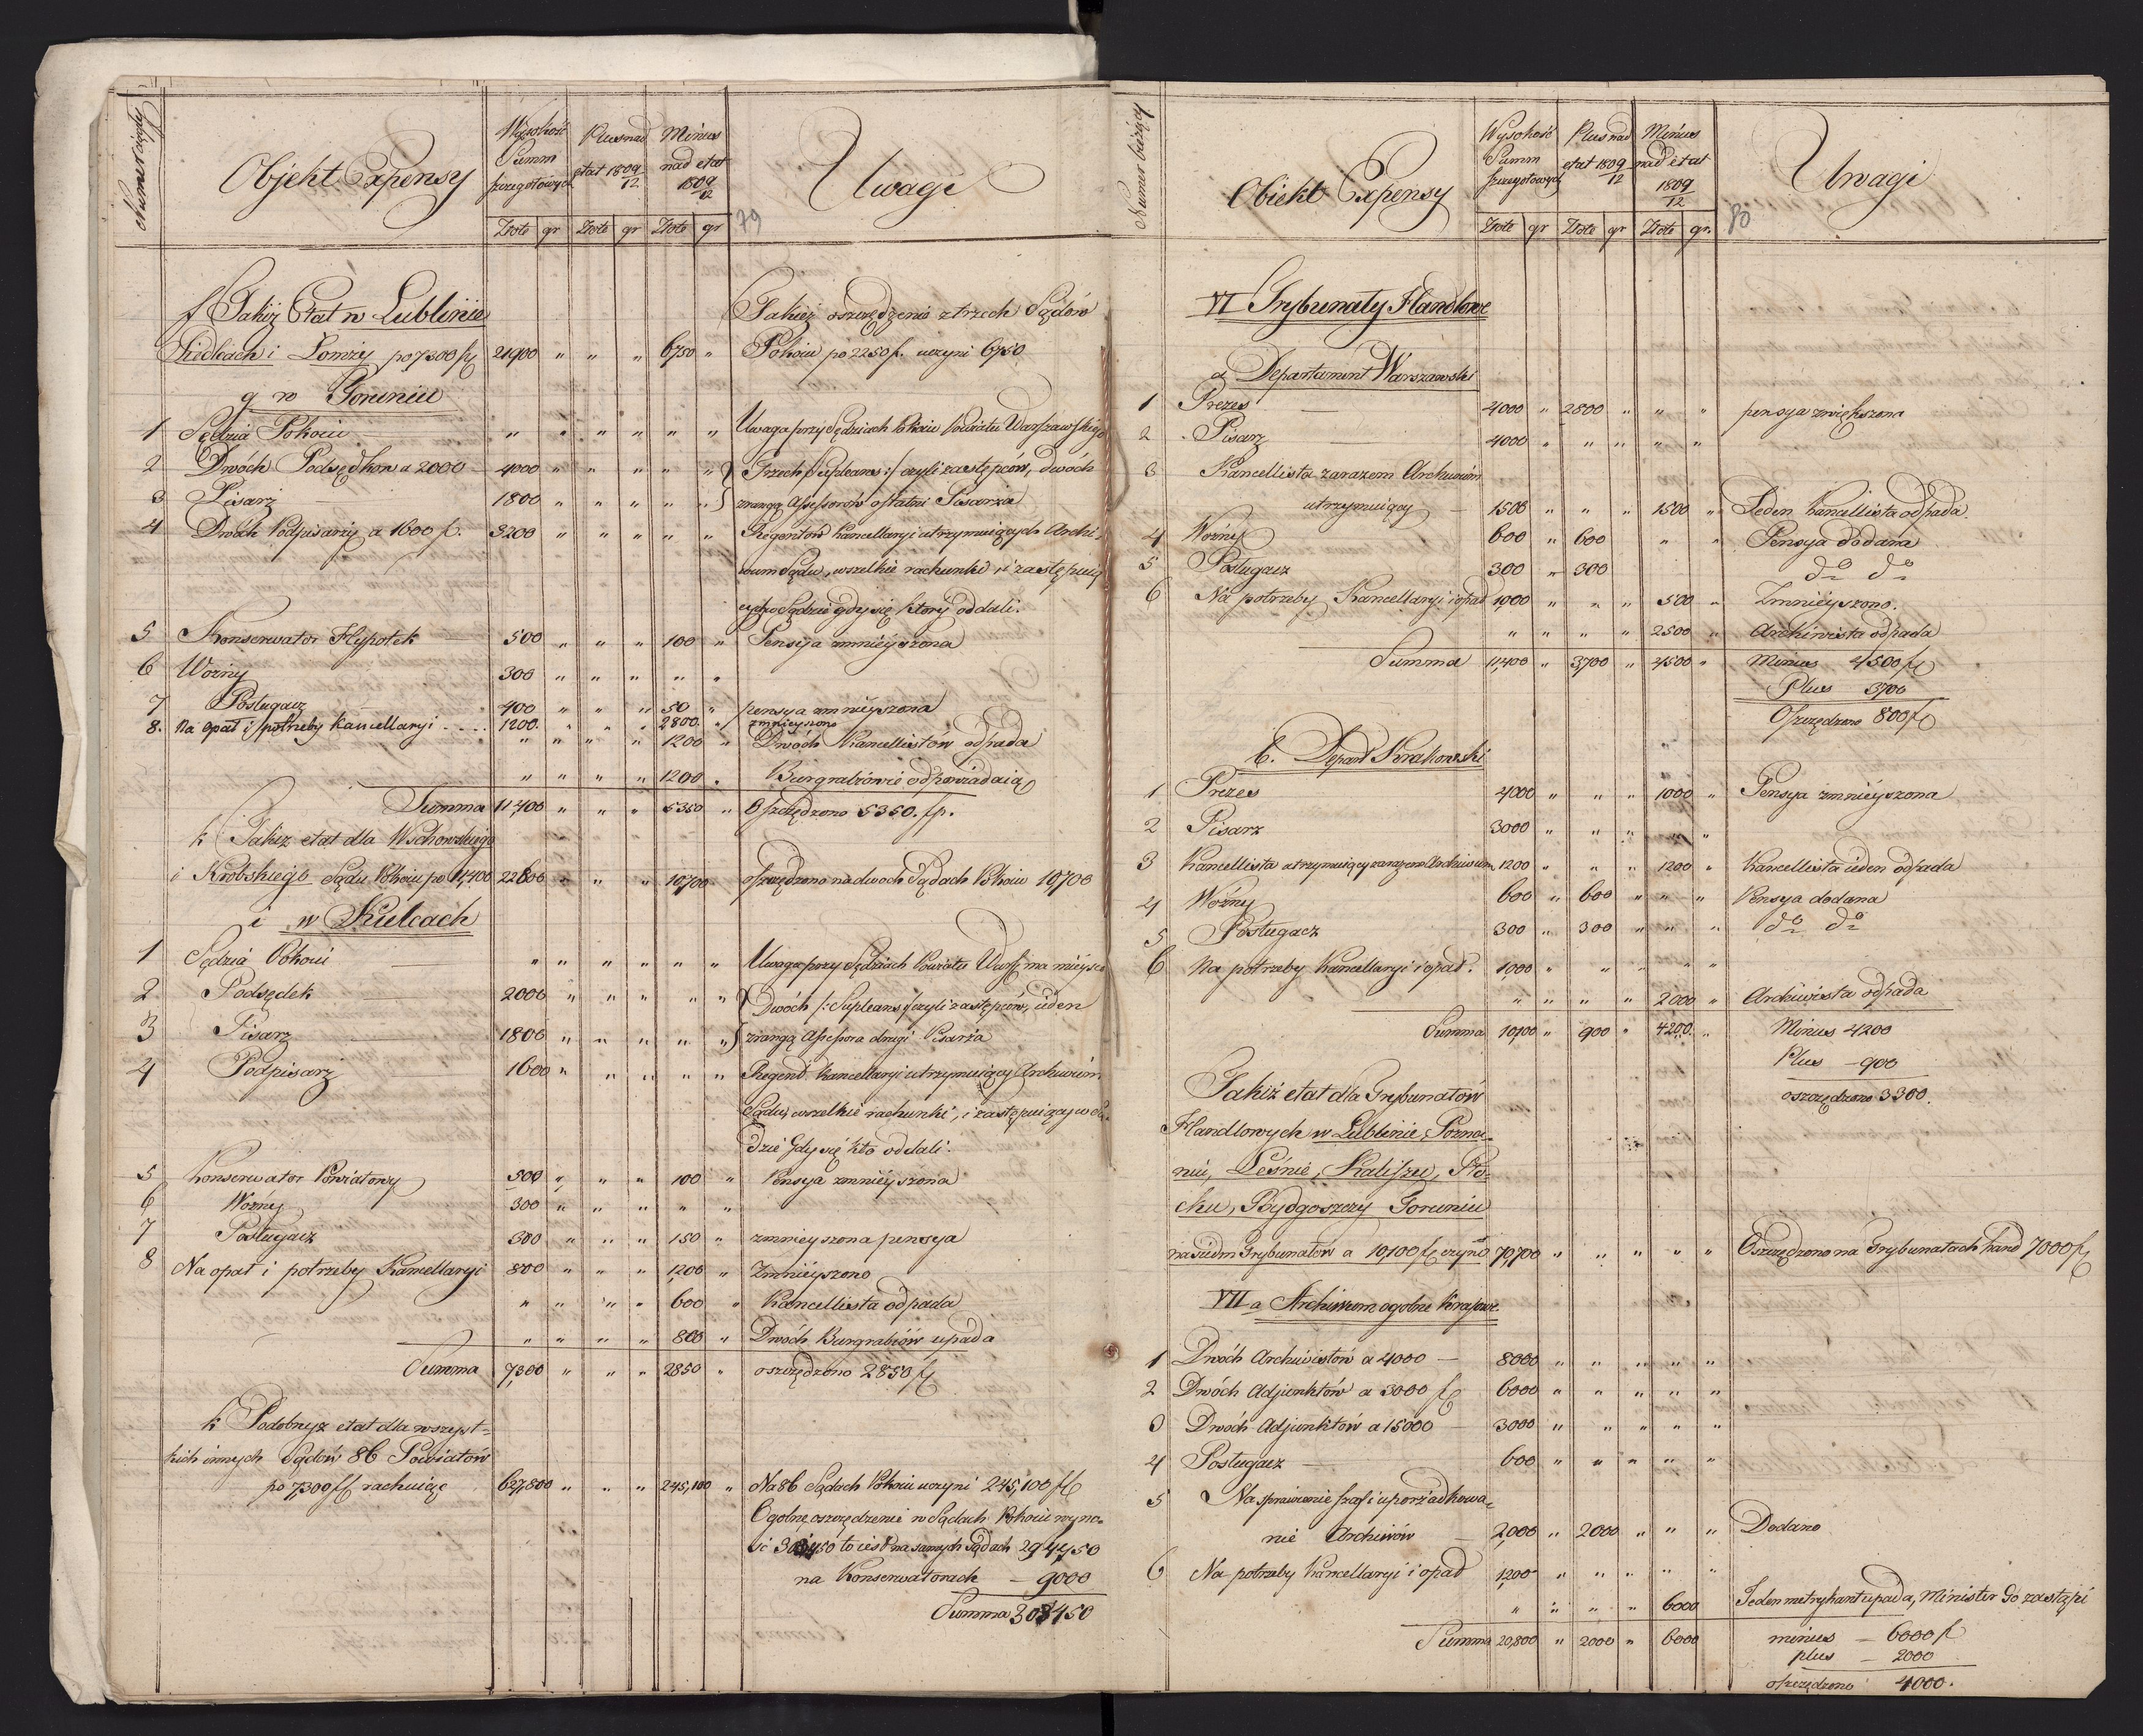 Numer bieżący
Objekt Expensy
Wysokość Summ przegotowych
Plus nad etat 1809/12
Minus nad etat 1809/12
Uwagi
Złote gr Złote gr Złote gr
79
f Takiż Etat w Lublinie Takież oszczędzenie z trzech Sądów
Siedlcach i Łomży po 7300 fl 21900 " " " 6750 " Pokoiu po 2250 f. uczyni 6750
g w Toruniu
1 Sędzia Pokoiu " " " " " " Uwaga przy Sędziach Pokoiu Powiatu Warszawskiego
2 Dwóch Podsędków a 2000 4000 " " " " " Trzech Supleans :/ czyli zastępców, dwóch
3 Pisarz 1800 " " " " " z rangą Assessorów ostatni Pisarza
4 Dwóch Podpisarzy a 1600 f. 3200 " " " " " Regentów Kancellaryi utrzymuiących Archi-
wum Sądu, wszelkie rachunki, i zastępuią
cych w Sądzie gdy się który oddali.
5 Konserwator Hypotek 500 " " " 100 " Pensyja zmnieyszona
6 Woźny 300 " " " " "
7 Posługacz 400 " " " 50 " pensya zmnieyszona
8. Na opał i potrzeby Kancellaryi 1200. " " " 2800. " zmnieyszono
" " " " 1200 " Dwóch Kancellistów odpada
" " " " 1200 " Burgrabiowie odpowiadaią
Summa 11400 " " " 5350 " Oszczędzono 5350. fl.
h Takiż etat dla Wschowskiego
i Krobskiego Sądu Pokoiu po 11,400 22800 " " " 10700 oszczędzono na dwoch Sądach Pokoiu 10700
i w Kielcach
1 Sędzia Pokoiu " " " " " " Uwaga przy Sędziach Powiatu Warsz. ma mieysce
2 Podsędek 2000 " " " " " Dwóch /: Supleans :/ czyli zastępców, ieden
3 Pisarz 1800 " " " " " z rangą Assessora drugi Pisarza
4 Podpisarz 1600 " " " " " Regent Kancellaryi utrzymuiący Archiwum
Sądu, wszelkie rachunki, i zastępuiący w Są-
dzie gdy się kto oddali.
5 Konserwator Powiatowy 500 " " " 100 " Pensya zmnieyszona
6 Woźny 300 " " " " "
7 Posługacz 300 " " " 150 " zmnieyszona pensya
8 Na opał i potrzeby Kancellaryi 800 " " " 1,200 " Zmnieyszono
" " " " 600 " Kancellista odpada
" " " " 800 " Dwóch Burgrabiów upada
Summa 7,300 " " " 2850 " oszczędzono 2850 fl
k Podobnyż etat dla wszyst-
kich innych Sądów 86 Powiatów
po 7,300 fl rachuiąc 627,800 " " " 245,100 " Na 86 Sądach Pokoiu uczyni 245,100 fl
Ogolne oszczędzenie w Sądach Pokoiu wyno-
si 303450 to iest na samych Sądach 294450
na Konserwatorach — 9000
Summa 303450
Numer bieżący
Obiekt Expensy
Wysokość Summ przegotowych
Plus nad etat 1809/12
Minus nad etat 1809/12
Uwagi
Złote gr Złote gr Złote gr.
80
VI Trybunały Handlowe
a Departament Warszawski
1 Prezes — 4000 " 2800 " " " pensya zwiększona
2 Pisarz 4000 " " " " "
3 Kancellista zarazem Archiwum
utrzymuiący — 1500 " " " 1500 " Jeden Kancellista odpada.
4 Woźny 600 " 600 " " Pensya dodana
5 Posługacz 300 " 300 do do
6 Na potrzeby Kancellaryi i opał 1000 " " " 500 " Zmnieyszono.
" " " " 2500 " Archiwista odpada
Summa 11,400 " 3,700 " 4500 " Minus 4500 fl
Plus 3700
Oszczędzono 800 fl
b. Depart Krakowski
1 Prezes 4000 " " " 1000 " Pensya zmnieyszona
2 Pisarz 3000 " " " " "
3 Kancellista utrzymuiący zarazem Archiwum 1200 " " " 1200 " Kancellista ieden odpada
4 Woźny 600 " 600 " " " Pensya dodana
5 Posługacz 300 " 300 " " " do do
6 Na potrzeby Kancellaryi i opał. 1000 " " " " "
" " " " 2000 " Archiwista odpada
Summa 10,100 " 900 " 4200. " Minus 4200
Plus — 900
oszczędzono 3300.
Takiż etat dla Trybunałów
Handlowych w Lublinie, Pozna-
niu, Lesznie, Kaliszu, Pło-
cku, Bydgoszczy Toruniu
na siedm Trybunałów a 10,100 fl czyni 70,700 " " " " " Oszczędzono na Trybunałach hand 7000 fl
VII a Archiwum ogolne Kraiowe
1 Dwóch Archiwistów a 4000 — 8000 " " " " "
2 Dwóch Adjunktów a 3000 fl 6000 " " " " "
3 Dwóch Adjunktów a 15000 — 3000 " " " " "
4 Posługacz — 600 " " " " "
5 Na sprawienie szaf i uporządkowa-
nie Archiwów — 2,000 " 2000 " " " Dodano
6 Na potrzeby Kancellaryi i opał 1,200 " " " " "
" " " " 6000 Jeden metrykant upada, Minister Go zastąpi
Summa 20,800 " 2000 " 6000 minus — 6000 f
plus — 2000
oszczędzono 4000.